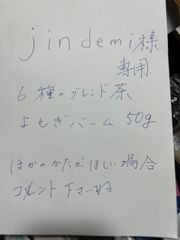 jindemi様
専用
6種のブレンド茶
よもぎバーム 50g
ほかのかたがほしい場合
コメント下さいね